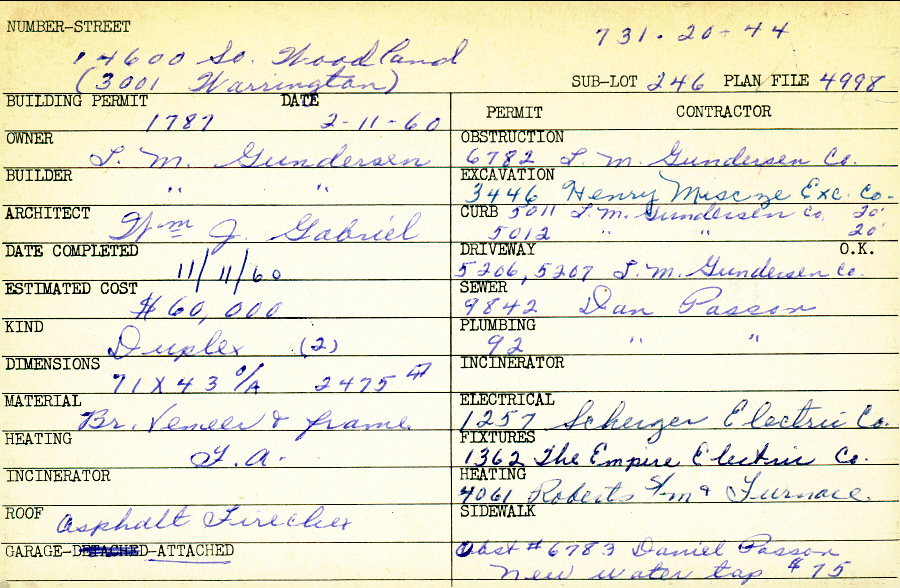 NUMBER-STREET
14600 So. Woodland
(3001 Warrington)
731-20-44
SUB-LOT 246 PLAN FILE 4998
BUILDING PERMIT DATE
1787 2-11-60
OWNER
L. M. Gundersen
BUILDER
" "
ARCHITECT
Wm J. Gabriel
DATE COMPLETED
11/11/60
ESTIMATED COST
$60,000
KIND
Duplex (2)
DIMENSIONS
71 X 43 O/A 2475
MATERIAL
Br. Veneer & frame
HEATING
F.A.
INCINERATOR
ROOF Asphalt Firechex
GARAGE-DETACHED-ATTACHED
PERMIT CONTRACTOR
OBSTRUCTION
6782 L. M. Gundersen Co.
EXCAVATION
3446 Henry Exc. Co.
CURB 5011 L. M. Gundersen Co. 20'
5012 " " 20'
DRIVEWAY O.K.
5206, 5207 L. M. Gundersen Co.
SEWER
9842 Dan Passon
PLUMBING
92 " "
INCINERATOR
ELECTRICAL
1257 Scherzer Electric Co.
FIXTURES
1362 The Empire Electric Co.
HEATING
4061 Roberts S/m & Furnace.
SIDEWALK
Obst #6783 Daniel Passon
New water tap $75